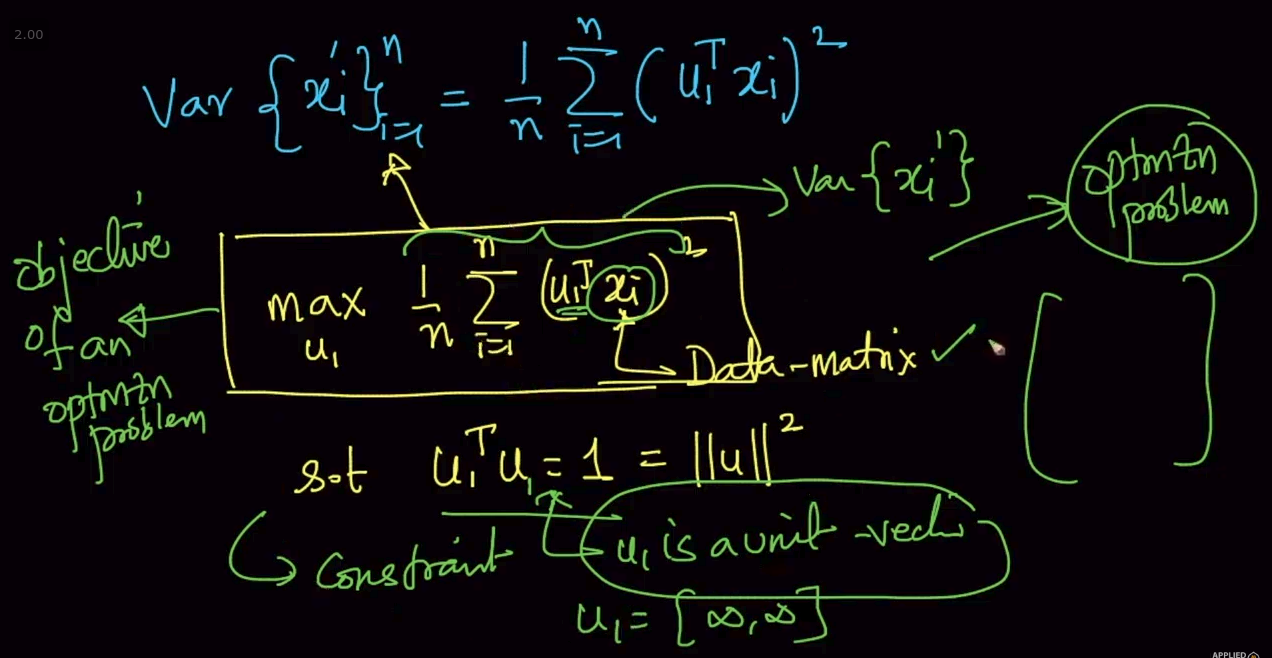 2.00
Var {xi'}ⁿᵢ₌₁ = 1/n Σⁿᵢ₌₁ (u₁ᵀ xi)²
Var {xi'}
optmzn
problem
objective
of an
optmzn
problem
max u₁ 1/n Σⁿᵢ₌₁ (u₁ᵀ xi)²
Data-matrix ✓
s.t u₁ᵀ u₁ = 1 = ||u||²
Constraint
u₁ is a unit-vector
u₁ = [∞, ∞]
APPLIED